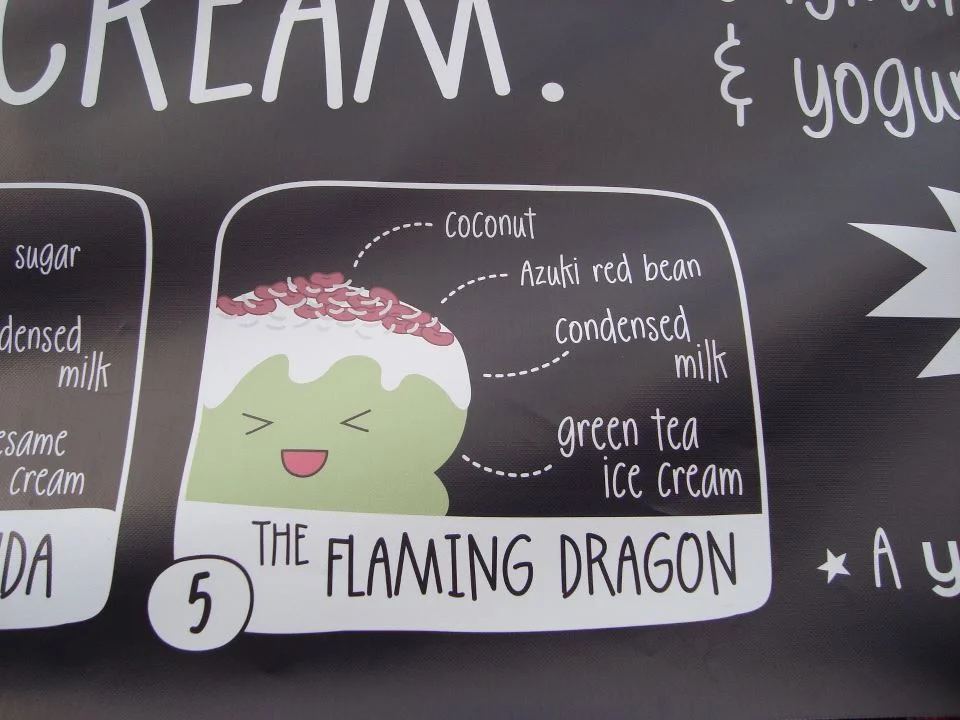 CREAM.
&
yogur
sugar
densed
milk
esame
cream
DA
coconut
Azuki red bean
condensed
milk
green tea
ice cream
THE FLAMING DRAGON
5
A y